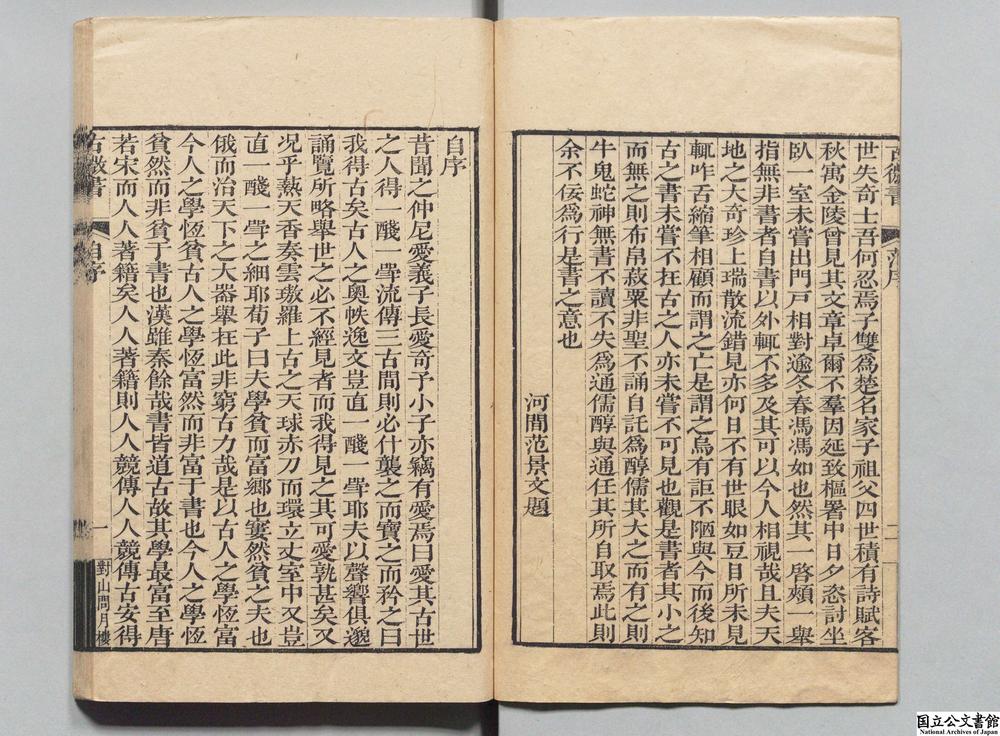 古微書
范序
二
世失奇士吾何忍焉子雙爲楚名家子祖父四世積有詩賦客
秋寓金陵曾見其文章卓爾不羣因延致樞署中日夕恣討坐
臥一室未嘗出門戸相對逾冬春馮馮如也然其一啓頰一舉
指無非書者自書以外輒不多及其可以今人相視哉且夫天
地之大奇珍上瑞散流錯見亦何日不有世眼如豆目所未見
輒咋舌縮筆相顧而謂之亡是謂之烏有詎不陋與今而後知
古之書未嘗不在古之人亦未嘗不可見也觀是書者其小之
而無之則布帛菽粟非聖不誦自託爲醇儒其大之而有之則
牛鬼蛇神無書不讀不失爲通儒醇與通任其所自取焉此則
余不佞爲行是書之意也
河間范景文題
自序
昔聞之仲尼愛義子長愛奇予小子亦竊有愛焉曰愛其古世
之人得一醆一斝流傳三古間則必什襲之而寶之而矜之曰
我得古矣古人之奧帙逸文豈直一醆一斝耶夫以聲響俱邈
誦覽所略舉世之必不經見者而我得見之其可愛孰甚矣又
况乎熱天香奏雲璈羅上古之天球赤刀而環立丈室中又豈
直一醆一斝之細耶荀子曰夫學貧而富鄉也窶然貧之夫也
俄而治天下之大器舉在此非窮古力哉是以古人之學恆富
今人之學恆貧古人之學恆富然而非富于書也今人之學恆
貧然而非貧于書也漢雖秦餘哉書皆道古故其學最富至唐
若宋而人人著籍矣人人著籍則人人競傳人人競傳古安得
古微書
自序
一
對山問月樓
国立公文書館
National Archives of Japan